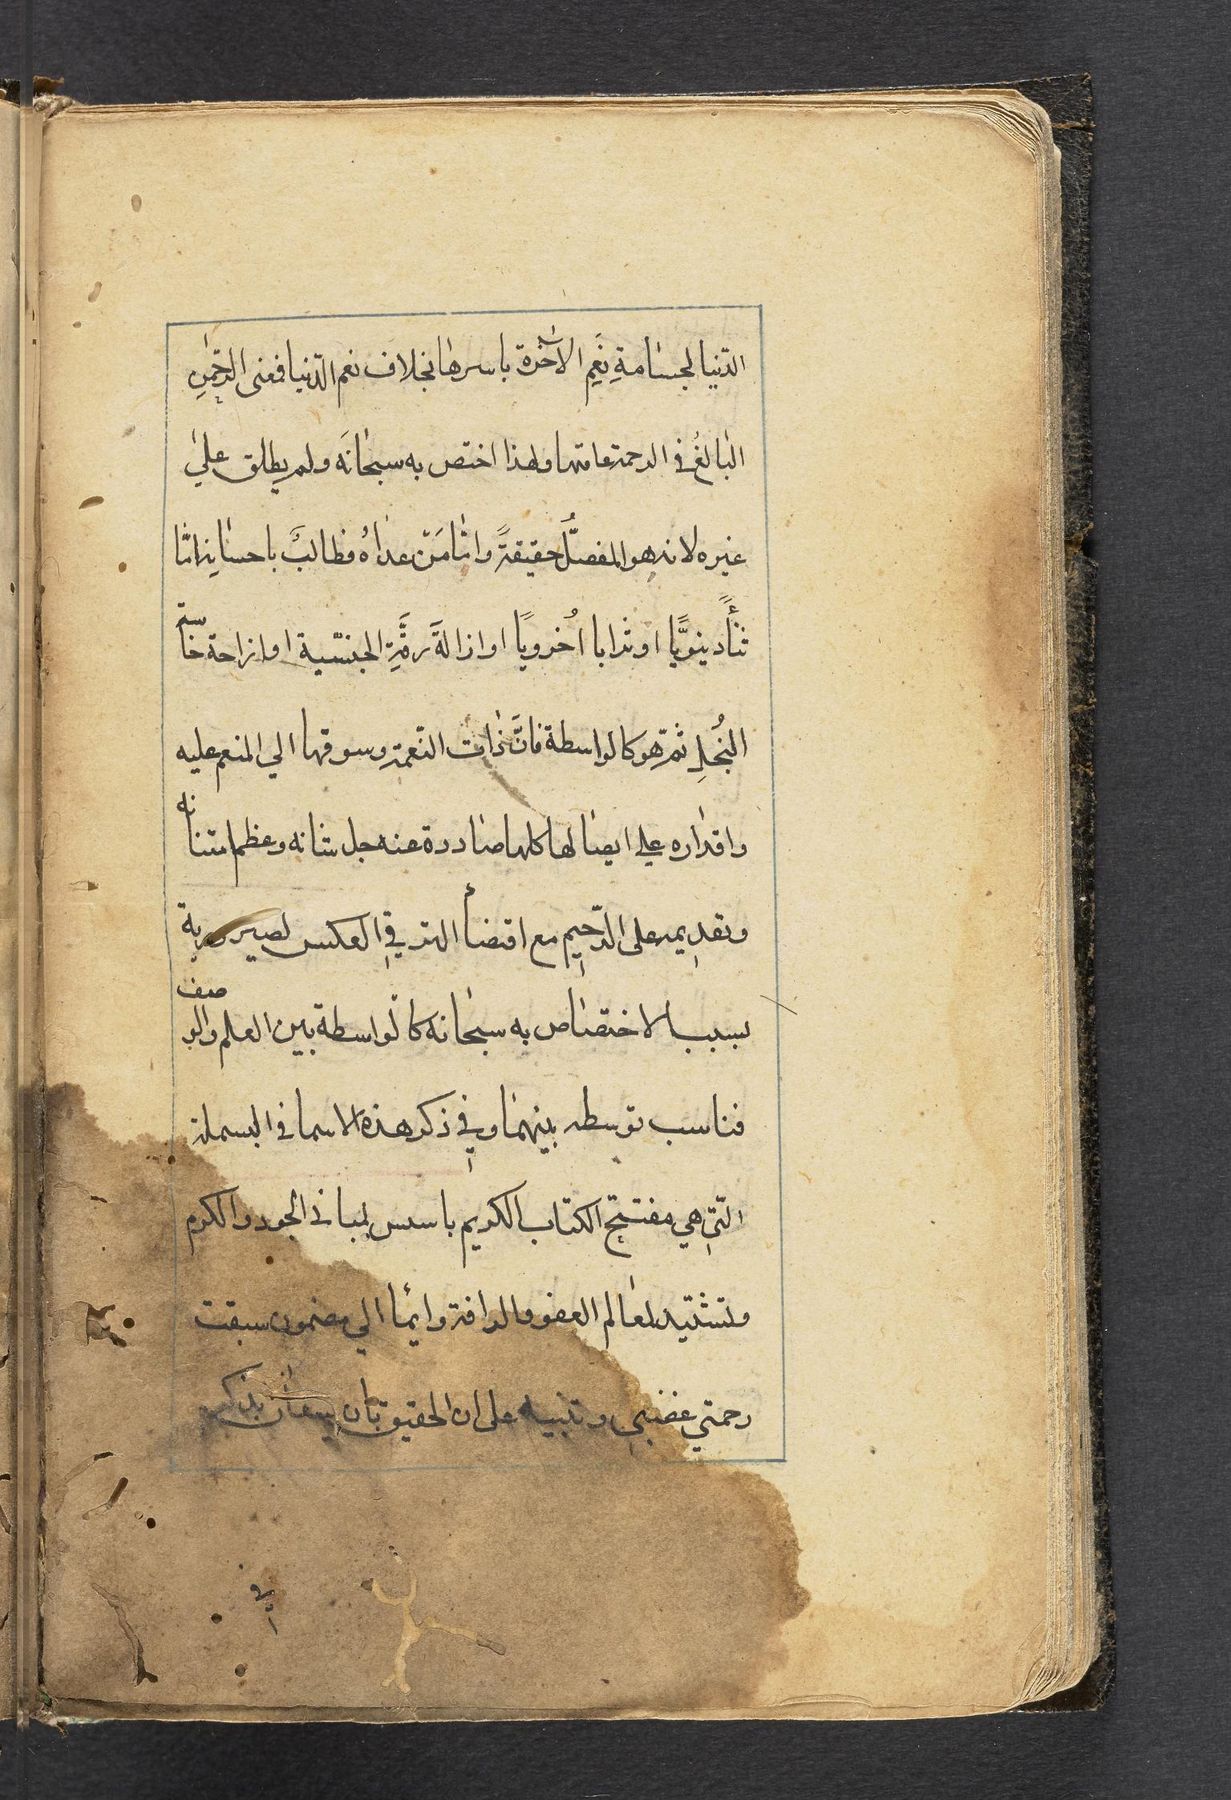 الدّنيا لجسٰامةِ نِعَمِ الاخرة باسرهٰا بخلاف نعم الدّنيا فمعنى الرّحمٰنِ
البٰالغُ في الرحمة غايتها ولهذا اختص به سبحٰانَه ولم يطلق علىٰ
غيره لانه هو المفضّلُ حقيقةً وامّا مَنْ عدٰاهُ فطالبٌ باحسٰانه امّا
ثنٰأً دينويًّا او ثوابا اُخرويًا او ازالةَ رِقّةِ الجنسّية او ازاحة خسٰاسة
البُخْلِ ثمّ هو كالواسطة فانَّ ذٰات النّعمة وسوقها الي المنعم عليه
واقدٰاره علي ايصٰالها كلها صٰادرة عنه جل شانه وعظم امتنانه
وتقديمه على الرّحيمِ مع اقتضأ الترقي العكس لصيرورية
بسبب الاختصٰاص به سبحٰانه كالواسطة بين العلم والوصف
فناسب توسطه بينهمٰا وفي ذكر هذه الاسما في البسملة
الّتي هي مفتتح الكتاب الكريم تاسيس لمباني الجود والكرم
وتشئييد لمعٰالم العفو والرافة وايمٰأ الي مضمون سبقت
رحمتي غضبي وتنبيه على ان الحقيق بان يستعٰان بذكره
في